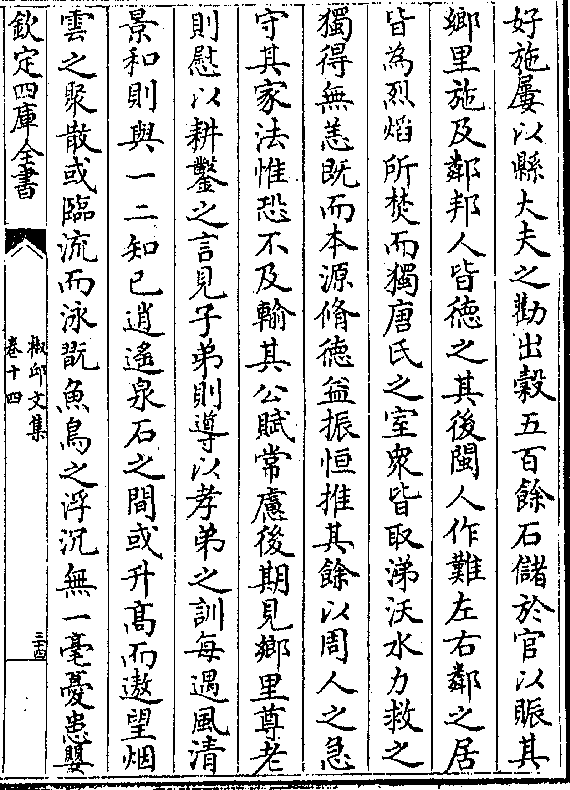 好施屢以縣大夫之勸出穀五百餘石儲於官以賑其
鄉里施及鄰邦人皆德之其後閩人作難左右鄰之居
皆為烈焰所焚而獨唐氏之室衆皆取涕沃水力救之
獨得無恙既而本源脩德益振恒推其餘以周人之急
守其家法惟恐不及輸其公賦常慮後期見鄉里尊老
則慰以耕鑿之言見子弟則導以孝弟之訓每遇風清
景和則與一二知已逍遙泉石之間或升髙而遨望烟
雲之聚散或臨流而泳翫魚鳥之浮沉無一毫憂患嬰
欽定四庫全書
椒邱文集
卷十四
三十四